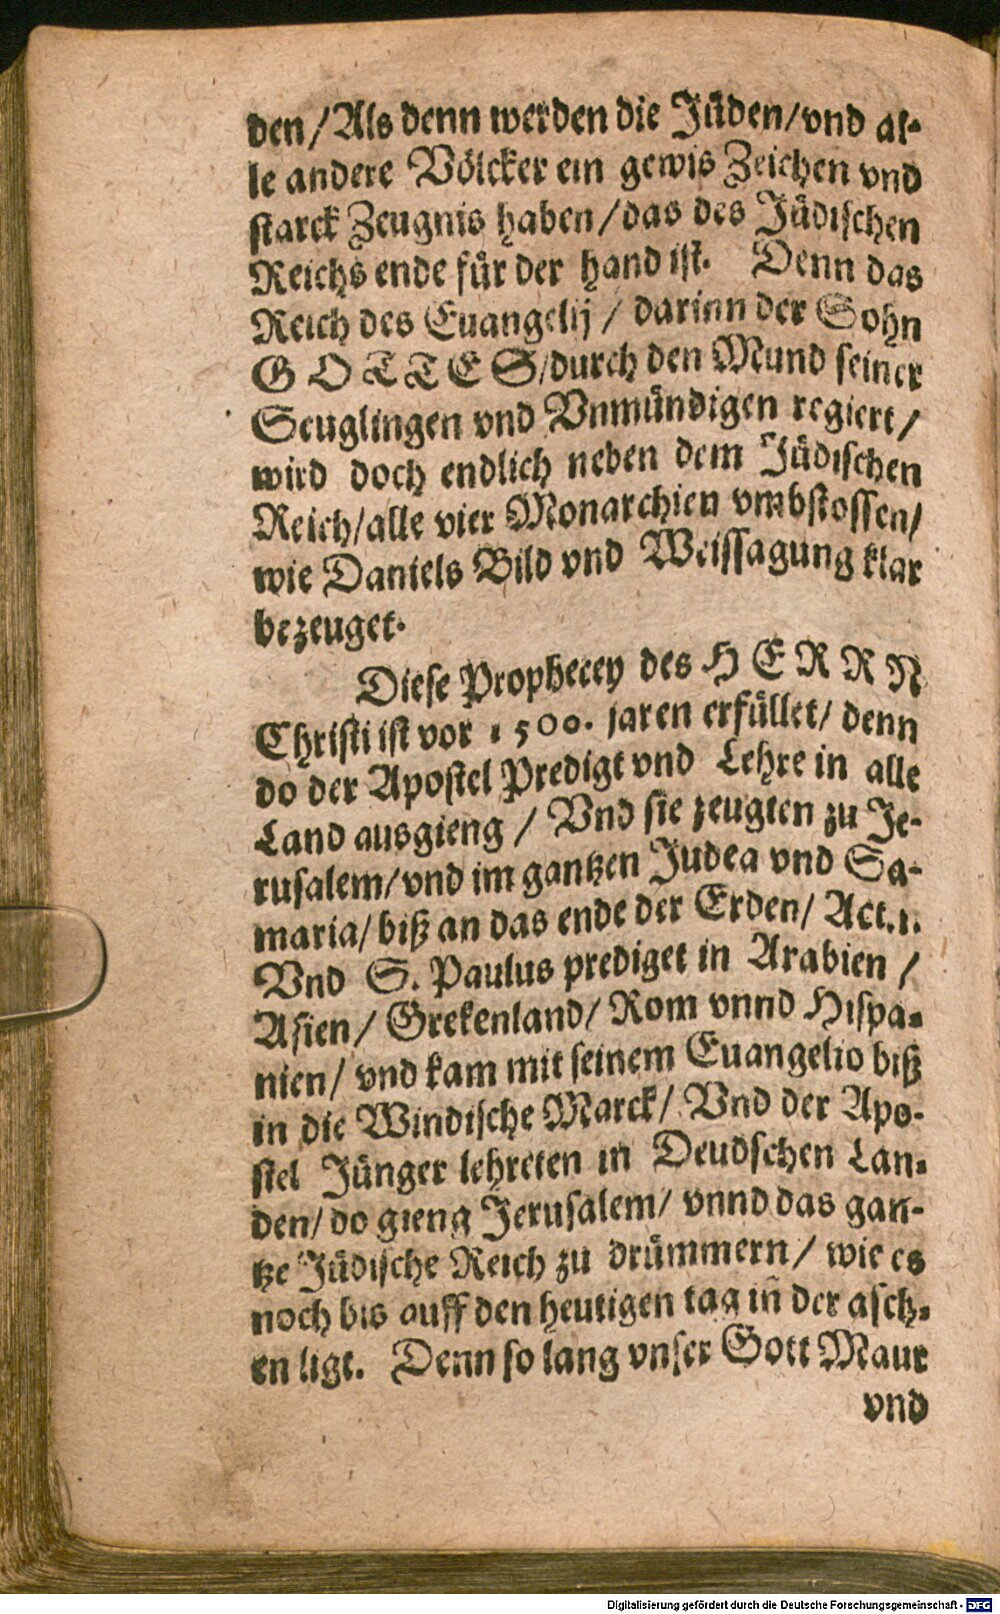 den/Als denn werden die Jüden/vnd al-
le andere Völcker ein gewis Zeichen vnd
starck Zeugnis haben/das des Jüdischen
Reichs ende für der hand ist. Denn das
Reich des Euangelij/ darinn der Sohn
GOTTES/durch den Mund seiner
Seuglingen vnd Vnmündigen regiert/
wird doch endlich neben dem Jüdischen
Reich/alle vier Monarchien vmbstossen/
wie Daniels Bild vnd Weissagung klar
bezeuget.
Diese Prophecey des HERRN
Christi ist vor 1500. jaren erfüllet/ denn
do der Apostel Predigt vnd Lehre in alle
Land ausgieng/ Vnd sie zeugten zu Je-
rusalem/vnd im gantzen Judea vnd Sa-
maria/ biß an das ende der Erden/ Act.1.
Vnd S. Paulus prediget in Arabien/
Asien/ Grekenland/ Rom vnnd Hispa-
nien/ vnd kam mit seinem Euangelio biß
in die Windische Marck/ Vnd der Apo-
stel Jünger lehreten in Deudschen Lan-
den/ do gieng Jerusalem/ vnnd das gan-
tze Jüdische Reich zu drümmern/ wie es
noch bis auff den heutigen tag in der asch-
en ligt. Denn so lang vnser Gott Maur
vnd
Digitalisierung gefördert durch die Deutsche Forschungsgemeinschaft - DFG